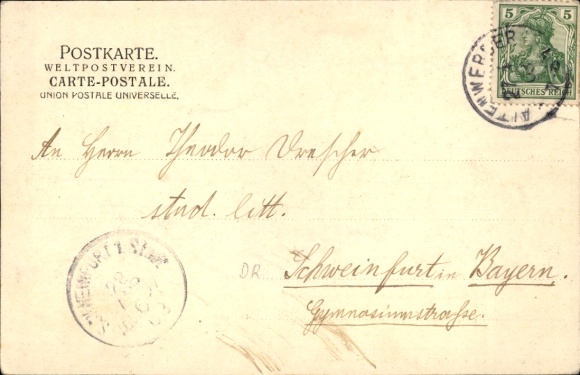 POSTKARTE.
WELTPOSTVEREIN.
CARTE-POSTALE.
UNION POSTALE UNIVERSELLE.
5 5
DEUTSCHES REICH
ALTENWERDER
An Herrn Theodor Drescher
stud. litt.
DR
Schweinfurt in Bayern.
Gymnasiumstrasse.
SCHWEINFURT 1 Stadt